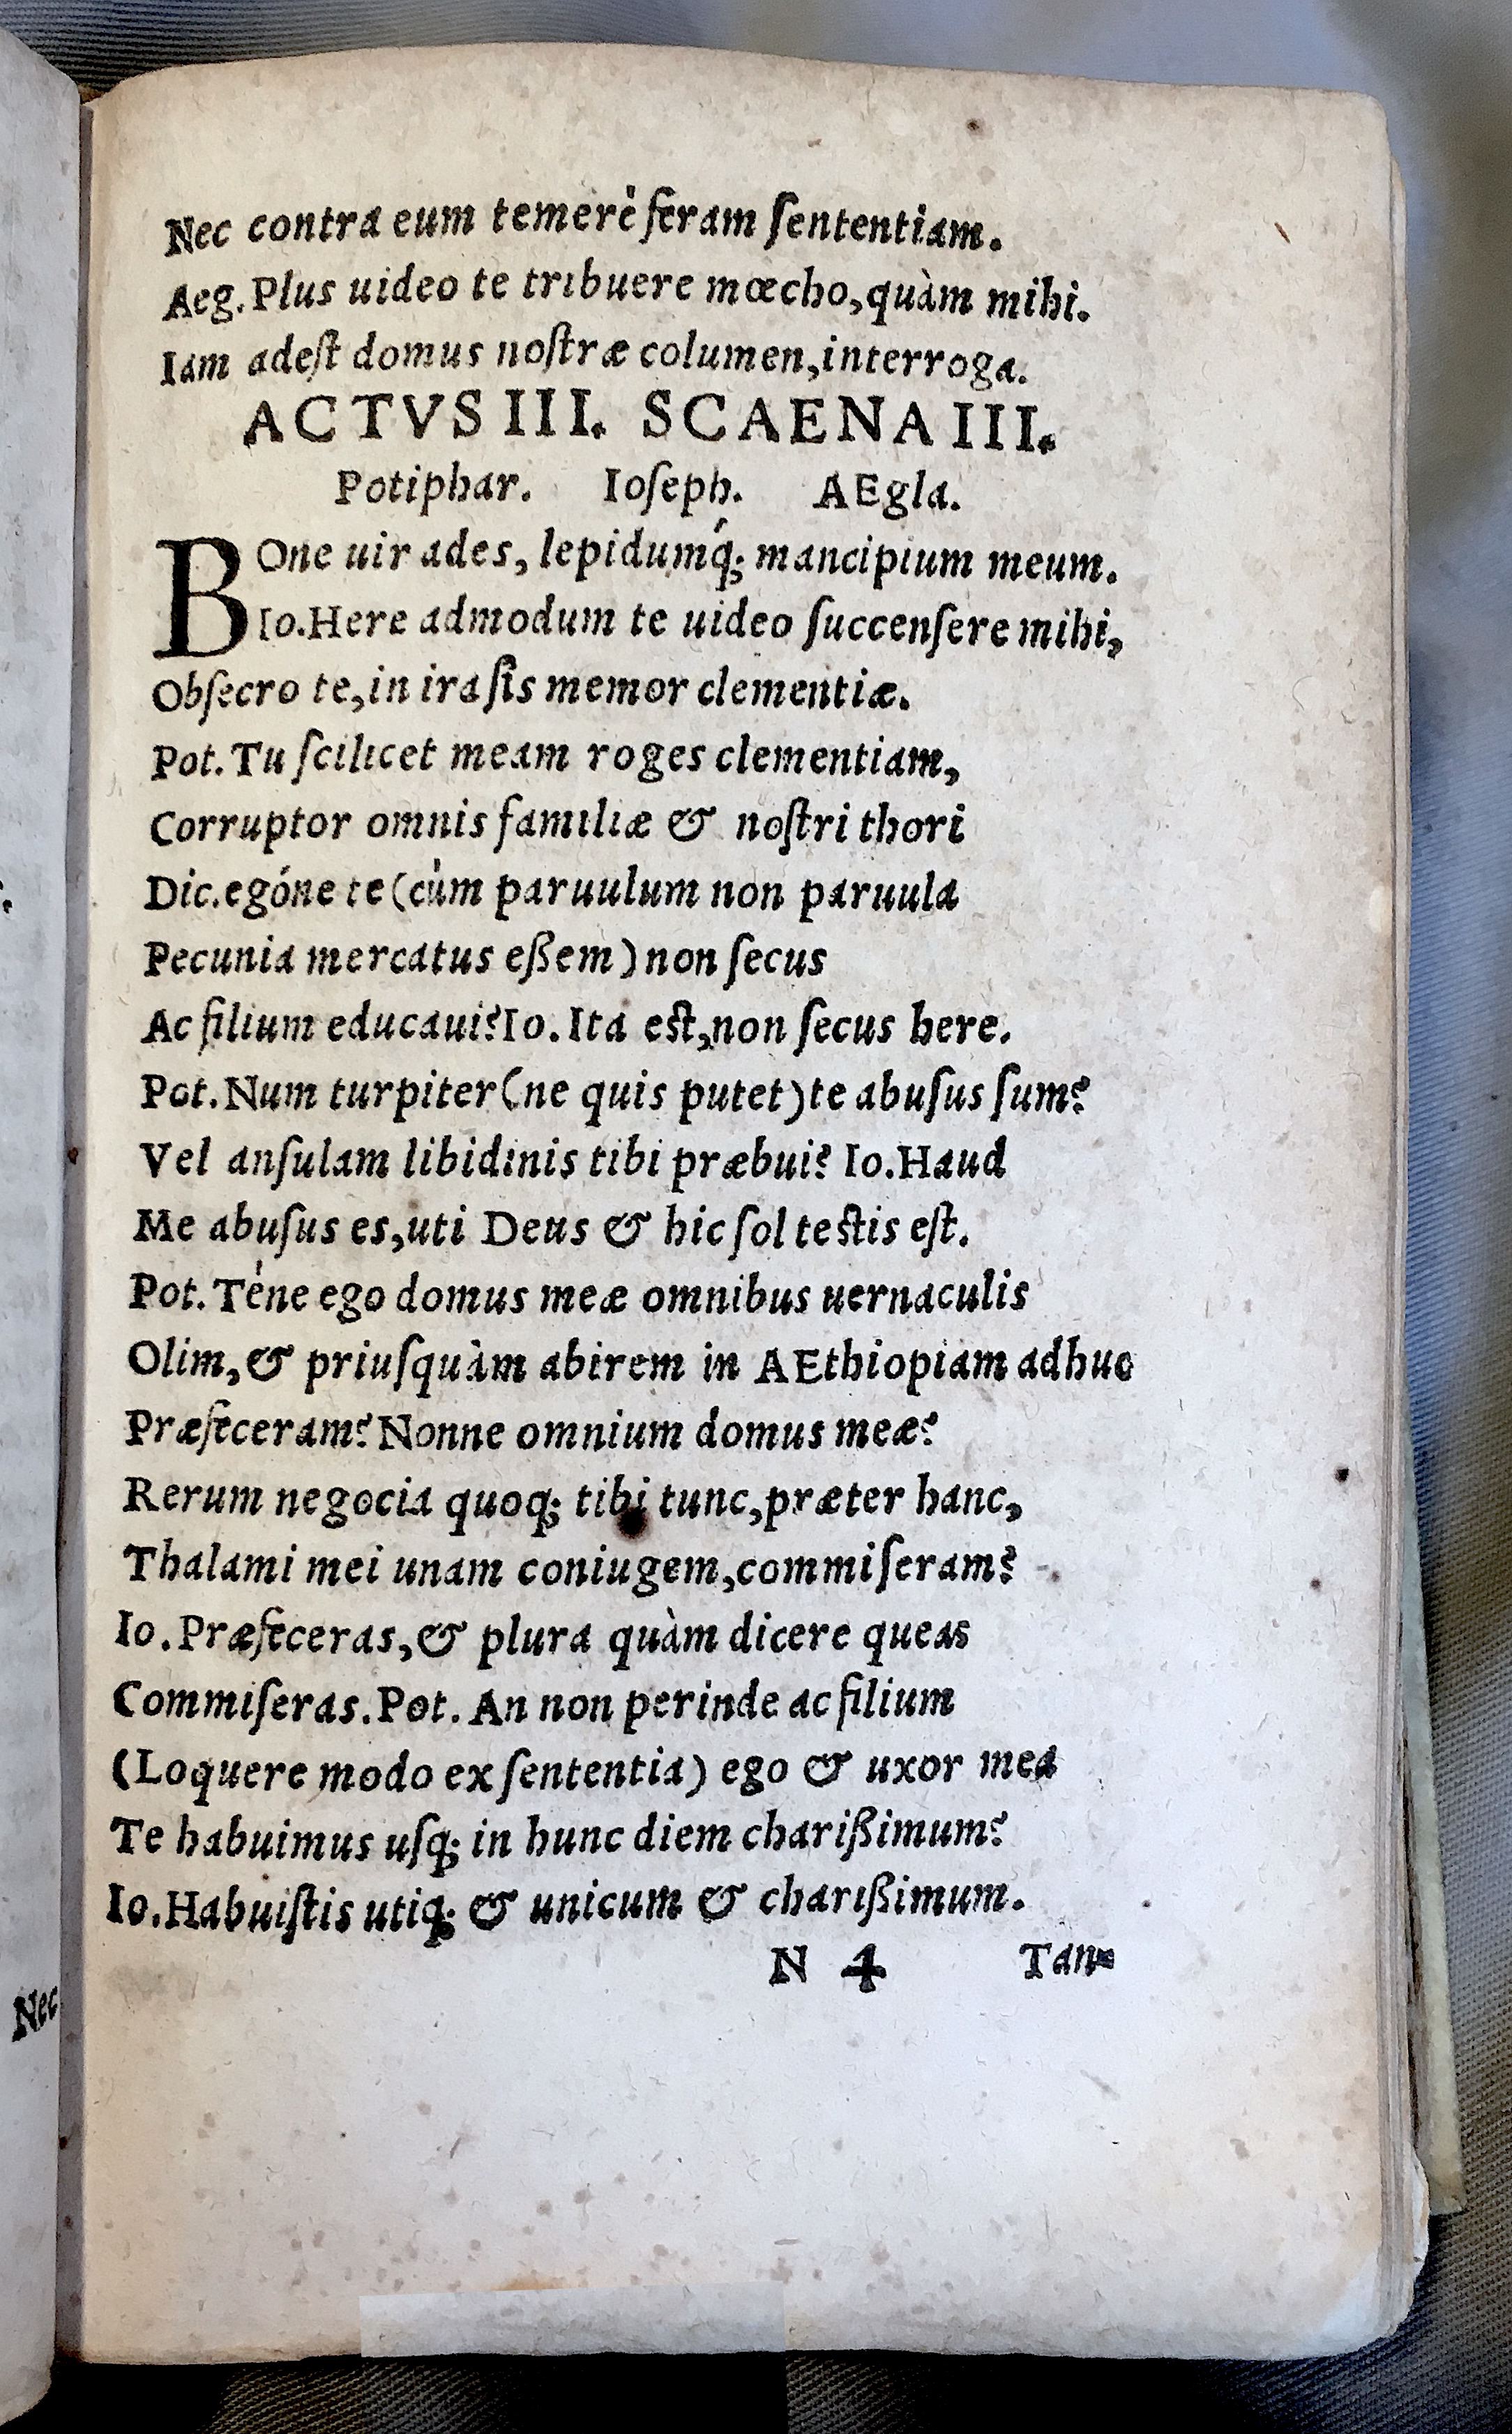 Nec contra eum temerè feram ſententiam.
Aeg. Plus uideo te tribuere mœcho, quàm mihi.
Iam adeſt domus noſtræ columen, interroga.
ACTVS III. SCAENA III.
Potiphar. Ioſeph. AEgla.
BOne uir ades, lepidumq́; mancipium meum.
Io. Here admodum te uideo ſuccenſere mihi,
Obſecro te, in ira ſis memor clementiæ.
Pot. Tu ſcilicet meam roges clementiam,
Corruptor omnis familiæ & noſtri thori
Dic. egóne te (cùm paruulum non paruula
Pecunia mercatus eßem) non ſecus
Ac filium educaui? Io. Ita eſt, non ſecus here.
Pot. Num turpiter (ne quis putet) te abuſus ſum?
Vel anſulam libidinis tibi præbui? Io. Haud
Me abuſus es, uti Deus & hic ſol teſtis eſt.
Pot. Téne ego domus meæ omnibus uernaculis
Olim, & priuſquàm abirem in AEthiopiam adhuc
Præfeceram? Nonne omnium domus meæ?
Rerum negocia quoq; tibi tunc, præter hanc,
Thalami mei unam coniugem, commiſeram?
Io. Præfeceras, & plura quàm dicere queas
Commiſeras. Pot. An non perinde ac filium
(Loquere modo ex ſententia) ego & uxor mea
Te habuimus uſq; in hunc diem charißimum?
Io. Habuiſtis utiq; & unicum & charißimum.
N 4 Tan-
Nec